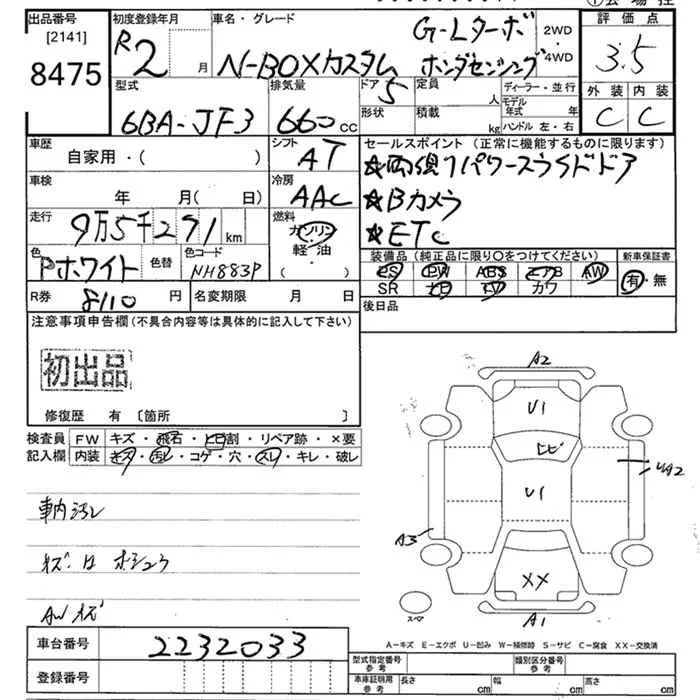 出品番号
[2141]
8475
初度登録年月
R2 月
車名・グレード
G-Lターボ
N-BOXカスタム ホンダセンシング
2WD
4WD
評価点
3.5
外装 内装
C C
型式
6BA-JF3
排気量
660 cc
ドア
5
形状
定員
人
積載
kg
ディーラー・並行
モデル年式 年
ハンドル 左・右
車歴
自家用・( )
シフト
AT
車検
年 月( 日)
冷房
AAC
走行
9万5千291 km
燃料
ガソリン
軽・油
( )
色
Pホワイト
色替
色コード
NH883P
R券
8110 円
名変期限 月 日
セールスポイント(正常に機能するものに限ります)
☆両側パワースライドドア
☆Bカメラ
☆ETC
装備品(純正品に限り○をつけてください)
新車保証書
PS PW ABS エアB AW
SR ナビ TV カワ
有・無
後日品
注意事項申告欄(不具合内容等は具体的に記入して下さい)
初出品
修復歴 有 [箇所 ]
検査員
記入欄
FW キズ・飛石・ヒビ割・リペア跡・×要
内装 キズ・汚レ・コゲ・穴・スレ・キレ・破レ
車内汚レ
AWキズ
A2
U1
ヒビ
U1
UA2
A3
XX
A1
スペア
A-キズ E-エクボ U-凹み W-補修跡 S-サビ C-腐食 XX-交換済
車台番号
2232033
登録番号
型式指定番号
参考
類別区分番号
参考
車庫証明用
参考
長さ cm 幅 cm 高さ cm